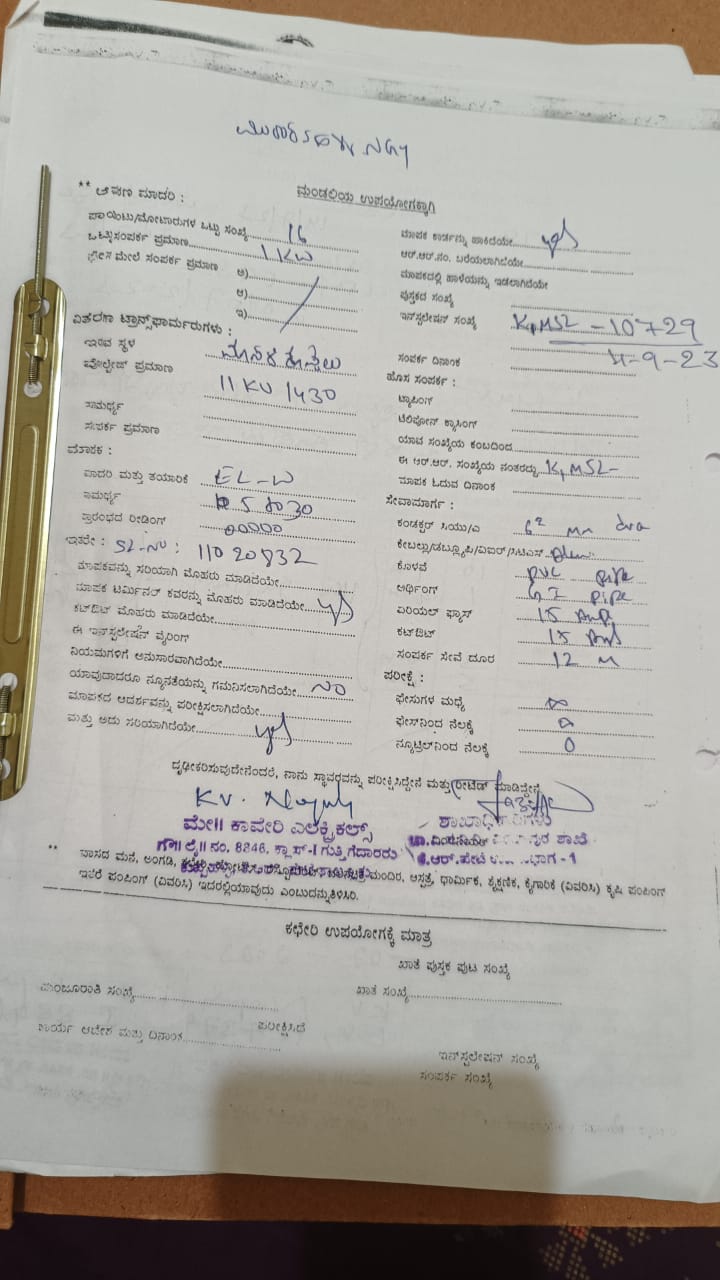 ಮಂಡಲಿಯ ಉಪಯೋಗಕ್ಕಾಗಿ
** ಆವರಣ ಮಾದರಿ :
ಪಾಯಿಂಟು/ಮೋಟಾರುಗಳ ಒಟ್ಟು ಸಂಖ್ಯೆ 16
ಒಟ್ಟು ಸಂಪರ್ಕ ಪ್ರಮಾಣ 1 KW
ಫೇಸ್ ಮೇಲೆ ಸಂಪರ್ಕ ಪ್ರಮಾಣ ಅ)
ಆ)
ಇ)
ವಿತರಣಾ ಟ್ರಾನ್ಸ್‌ಫಾರ್ಮರುಗಳು :
ಇರುವ ಸ್ಥಳ
ವೋಲ್ಟೇಜ್ ಪ್ರಮಾಣ 11 KV / 430
ಸಾಮರ್ಥ್ಯ
ಸಂಪರ್ಕ ಪ್ರಮಾಣ
ಮಾಪಕ :
ಮಾದರಿ ಮತ್ತು ತಯಾರಿಕೆ EL-W
ಸಾಮರ್ಥ್ಯ
ಪ್ರಾರಂಭದ ರೀಡಿಂಗ್ 00000
ಇತರೇ : SL-NO : 11020832
ಮಾಪಕವನ್ನು ಸರಿಯಾಗಿ ಮೊಹರು ಮಾಡಿದೆಯೇ
ಮಾಪಕ ಟರ್ಮಿನಲ್ ಕವರನ್ನು ಮೊಹರು ಮಾಡಿದೆಯೇ yes
ಕಟ್‌ಔಟ್ ಮೊಹರು ಮಾಡಿದೆಯೇ
ಈ ಇನ್‌ಸ್ಟಲೇಷನ್ ವೈರಿಂಗ್
ನಿಯಮಗಳಿಗೆ ಅನುಸಾರವಾಗಿದೆಯೇ
ಯಾವುದಾದರೂ ನ್ಯೂನತೆಯನ್ನು ಗಮನಿಸಲಾಗಿದೆಯೇ NO
ಮಾಪಕದ ಆದರ್ಶವನ್ನು ಪರೀಕ್ಷಿಸಲಾಗಿದೆಯೇ
ಮತ್ತು ಅದು ಸರಿಯಾಗಿದೆಯೇ yes
ಮಾಪಕ ಕಾರ್ಡನ್ನು ಹಾಕಿದೆಯೇ yes
ಆರ್.ಆರ್.ನಂ. ಬರೆಯಲಾಗಿದೆಯೇ
ಮಾಪಕದಲ್ಲಿ ಹಾಳೆಯನ್ನು ಇಡಲಾಗಿದೆಯೇ
ಪುಸ್ತಕದ ಸಂಖ್ಯೆ
ಇನ್‌ಸ್ಟಲೇಷನ್ ಸಂಖ್ಯೆ K4MSL-10729
ಸಂಪರ್ಕ ದಿನಾಂಕ 4-9-23
ಹೊಸ ಸಂಪರ್ಕ :
ಟ್ಯಾಪಿಂಗ್
ಟೆಲಿಫೋನ್ ಕ್ರಾಸಿಂಗ್
ಯಾವ ಸಂಖ್ಯೆಯ ಕಂಬದಿಂದ
ಈ ಆರ್.ಆರ್. ಸಂಖ್ಯೆಯ ನಂತರದ್ದು K4MSL-
ಮಾಪಕ ಓದುವ ದಿನಾಂಕ
ಸೇವಾಮಾರ್ಗ :
ಕಂಡಕ್ಟರ್ ಸಿಯು/ಎ
ಕೇಬಲ್ಲು/ಡಬ್ಲ್ಯೂಪಿ/ವಿಐಆರ್/ಸಿಟಿಎಸ್
ಕೊಳವೆ PVC pipe
ಅರ್ಥಿಂಗ್ GI pipe
ಏರಿಯಲ್ ಫ್ಯೂಸ್ 15 Amp
ಕಟ್‌ಔಟ್ 15 Amp
ಸಂಪರ್ಕ ಸೇವೆ ದೂರ 12 M
ಪರೀಕ್ಷೆ :
ಫೇಸುಗಳ ಮಧ್ಯೆ
ಫೇಸ್‌ನಿಂದ ನೆಲಕ್ಕೆ
ನ್ಯೂಟ್ರಲ್‌ನಿಂದ ನೆಲಕ್ಕೆ 0
ದೃಢೀಕರಿಸುವುದೇನೆಂದರೆ, ನಾನು ಸ್ಥಾವರವನ್ನು ಪರೀಕ್ಷಿಸಿದ್ದೇನೆ ಮತ್ತು (ರೀಟೆಡ್ ಮಾಡಿದ್ದೇನೆ)
ಮೇ॥ ಕಾವೇರಿ ಎಲೆಕ್ಟ್ರಿಕಲ್ಸ್
ಶಾಖಾಧಿಕಾರಿಗಳು
ಲೈ॥ ನಂ. 8846, ಕ್ಲಾಸ್-I ಗುತ್ತಿಗೆದಾರರು
** ವಾಸದ ಮನೆ, ಅಂಗಡಿ, ಮಂದಿರ, ಆಸ್ಪತ್ರೆ, ಧಾರ್ಮಿಕ, ಶೈಕ್ಷಣಿಕ, ಕೈಗಾರಿಕೆ (ವಿವರಿಸಿ) ಕೃಷಿ ಪಂಪಿಂಗ್
ಇತರೆ ಪಂಪಿಂಗ್ (ವಿವರಿಸಿ) ಇದರಲ್ಲಿಯಾವುದು ಎಂಬುದನ್ನು ತಿಳಿಸಿರಿ.
ಕಛೇರಿ ಉಪಯೋಗಕ್ಕೆ ಮಾತ್ರ
ಖಾತೆ ಪುಸ್ತಕ ಪುಟ ಸಂಖ್ಯೆ
ಮಂಜೂರಾತಿ ಸಂಖ್ಯೆ ಖಾತೆ ಸಂಖ್ಯೆ
ಕಾರ್ಯ ಆದೇಶ ಮತ್ತು ದಿನಾಂಕ ಪರೀಕ್ಷಿಸಿದೆ
ಇನ್‌ಸ್ಟಲೇಷನ್ ಸಂಖ್ಯೆ
ಸಂಪರ್ಕ ಸಂಖ್ಯೆ